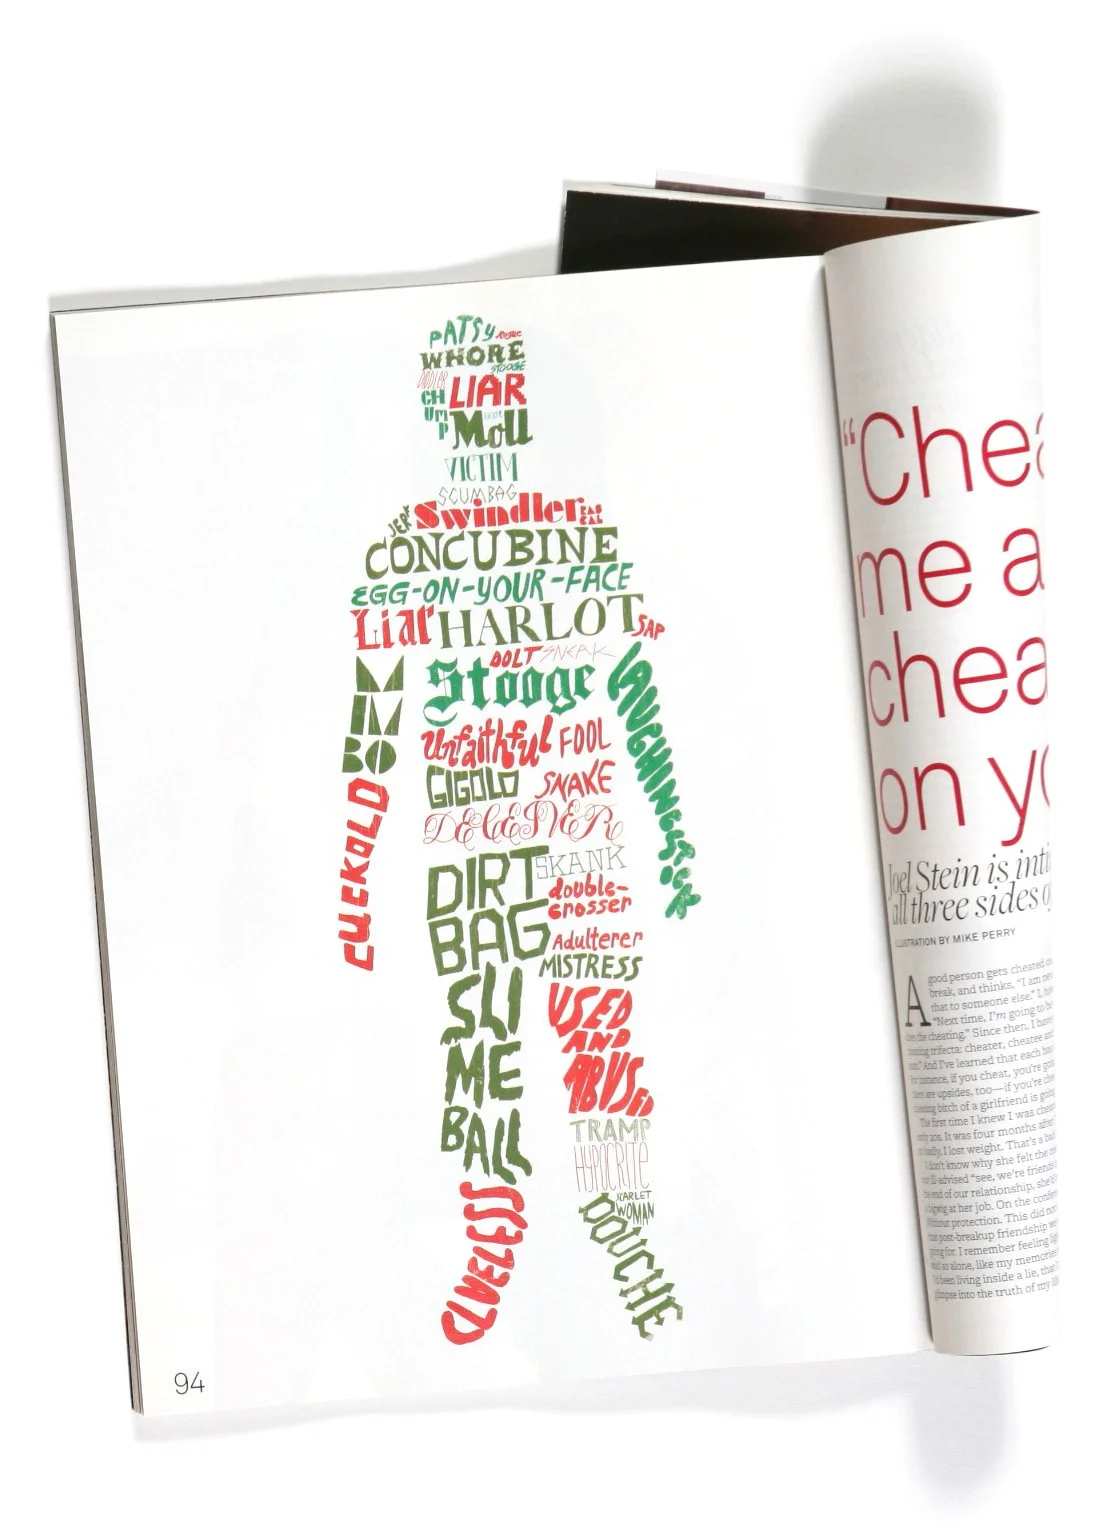 PATSY Rogue
WHORE
STOOGE
CHUMP
LIAR
Moll
VICTIM
SCUMBAG
JERK
Swindler
RASCAL
CONCUBINE
EGG-ON-YOUR-FACE
Liar HARLOT SAP
DOLT SNEAK
MIMBO
Stooge
LAUGHINGSTOCK
Unfaithful FOOL
GIGOLO SNAKE
CUCKOLD
DECEIVER
DIRTBAG
SKANK
double-
crosser
Adulterer
MISTRESS
SLIMEBALL
USED
AND
ABUSED
TRAMP
HYPOCRITE
SCARLET
WOMAN
CLUELESS
DOUCHE
94
"Chea
me a
chea
on yo
Joel Stein is inti
all three sides o
ILLUSTRATION BY MIKE PERRY
A good person gets cheated on
break, and thinks, "I am nev
that to someone else." I, how
"Next time, I'm going to be
does the cheating." Since then, I have
cheating trifecta: cheater, cheatee and
man." And I've learned that each has
For instance, if you cheat, you're going
there are upsides, too—if you're che
cheating bitch of a girlfriend is going
The first time I knew I was cheated
early 20s. It was four months after
badly, I lost weight. That's a bad
I don't know why she felt the nee
our ill-advised "see, we're friends
the end of our relationship, she'd
a bigwig at her job. On the confere
Without protection. This did not
that post-breakup friendship we
going for. I remember feeling lig
and so alone, like my memories
I'd been living inside a lie, that
glimpse into the truth of my life